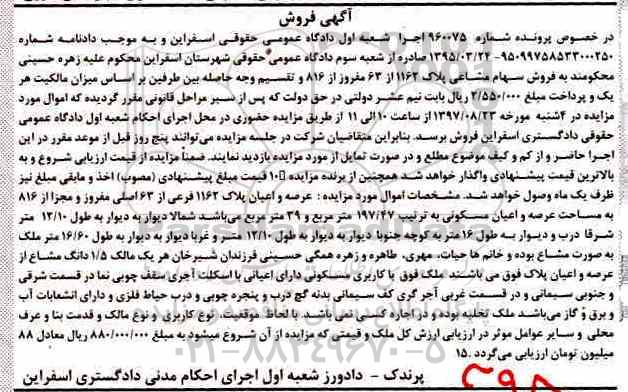 آگهی فروش
در خصوص پرونده شماره ۹۶۰۰۷۵ اجرا شعبه اول دادگاه عمومی حقوقی اسفراین و به موجب دادنامه شماره
۹۵۰۹۹۷۵۸۵۳۳۰۰۲۵۰-۱۳۹۵/۰۳/۲۲ صادره از شعبه سوم دادگاه عمومی حقوقی شهرستان اسفراین محکوم علیه زهره حسینی
محکومند به فروش سهام مشاعی پلاک ۱۱۶۲ از ۶۳ مفروز از ۸۱۶ و تقسیم وجه حاصله بین طرفین بر اساس میزان مالکیت هر
یک و پرداخت مبلغ ۲/۵۵۰/۰۰۰ ریال بابت نیم عشر دولتی در حق دولت که پس از سیر مراحل قانونی مقرر گردیده که اموال مورد
مزایده در ۴شنبه مورخه ۱۳۹۷/۰۸/۲۳ از ساعت ۱۰ الی ۱۱ از طریق مزایده حضوری در محل اجرای احکام شعبه اول دادگاه عمومی
حقوقی دادگستری اسفراین فروش برسد. بنابراین متقاضیان شرکت در جلسه مزایده می‌توانند پنج روز قبل از موعد مقرر در این
اجرا حاضر و از کم و کیف موضوع مطلع و در صورت تمایل از مورد مزایده بازدید نمایند. ضمناً مزایده از قیمت ارزیابی شروع و به
بالاترین قیمت پیشنهادی واگذار خواهد شد همچنین از برنده مزایده ۱۰٪ قیمت مبلغ پیشنهادی (مصوب) اخذ و مابقی مبلغ نیز
ظرف یک ماه وصول خواهد شد. مشخصات اموال مورد مزایده : عرصه و اعیان پلاک ۱۱۶۲ فرعی از ۶۳ اصلی مفروز و مجزا از ۸۱۶
به مساحت عرصه و اعیان مسکونی به ترتیب ۱۹۷/۴۷ متر مربع و ۳۹ متر مربع می‌باشد شمالا دیوار به دیوار به طول ۱۲/۱۰ متر
شرقا درب و دیوار به طول ۱۶ متر به کوچه جنوبا دیوار به دیوار به طول ۱۲/۱۰ متر و غربا دیوار به دیوار به طول ۱۶/۶۰ متر ملک
به صورت مشاع بوده و خانم ها حیات، مهری، طاهره و زهره همگی حسینی فرزندان شیرخان هر یک مالک ۱/۵ دانگ مشاع از
عرصه و اعیان پلاک فوق می باشند ملک فوق با کاربری مسکونی دارای اعیانی با اسکلت آجری سقف چوبی نما در قسمت شرقی
و جنوبی سیمانی و در قسمت غربی آجر گری کف سیمانی بدنه گچ درب و پنجره چوبی و درب حیاط فلزی و دارای انشعابات آب
و برق و گاز می‌باشد ملک تخلیه بوده و در اجاره کسی نمی باشد. با لحاظ موقعیت، نوع کاربری و نوع مالک و قدمت بنا و عرف
محلی و سایر عوامل موثر در ارزیابی ارزش کل ملک و قیمتی که مزایده از آن شروع میشود به مبلغ ۸۸۰/۰۰۰/۰۰۰ ریال معادل ۸۸
میلیون تومان ارزیابی می‌گردد .۱۵
پرندک - دادورز شعبه اول اجرای احکام مدنی دادگستری اسفراین
۰۲۱-۸۸۳۴۹۶۷۰-۵